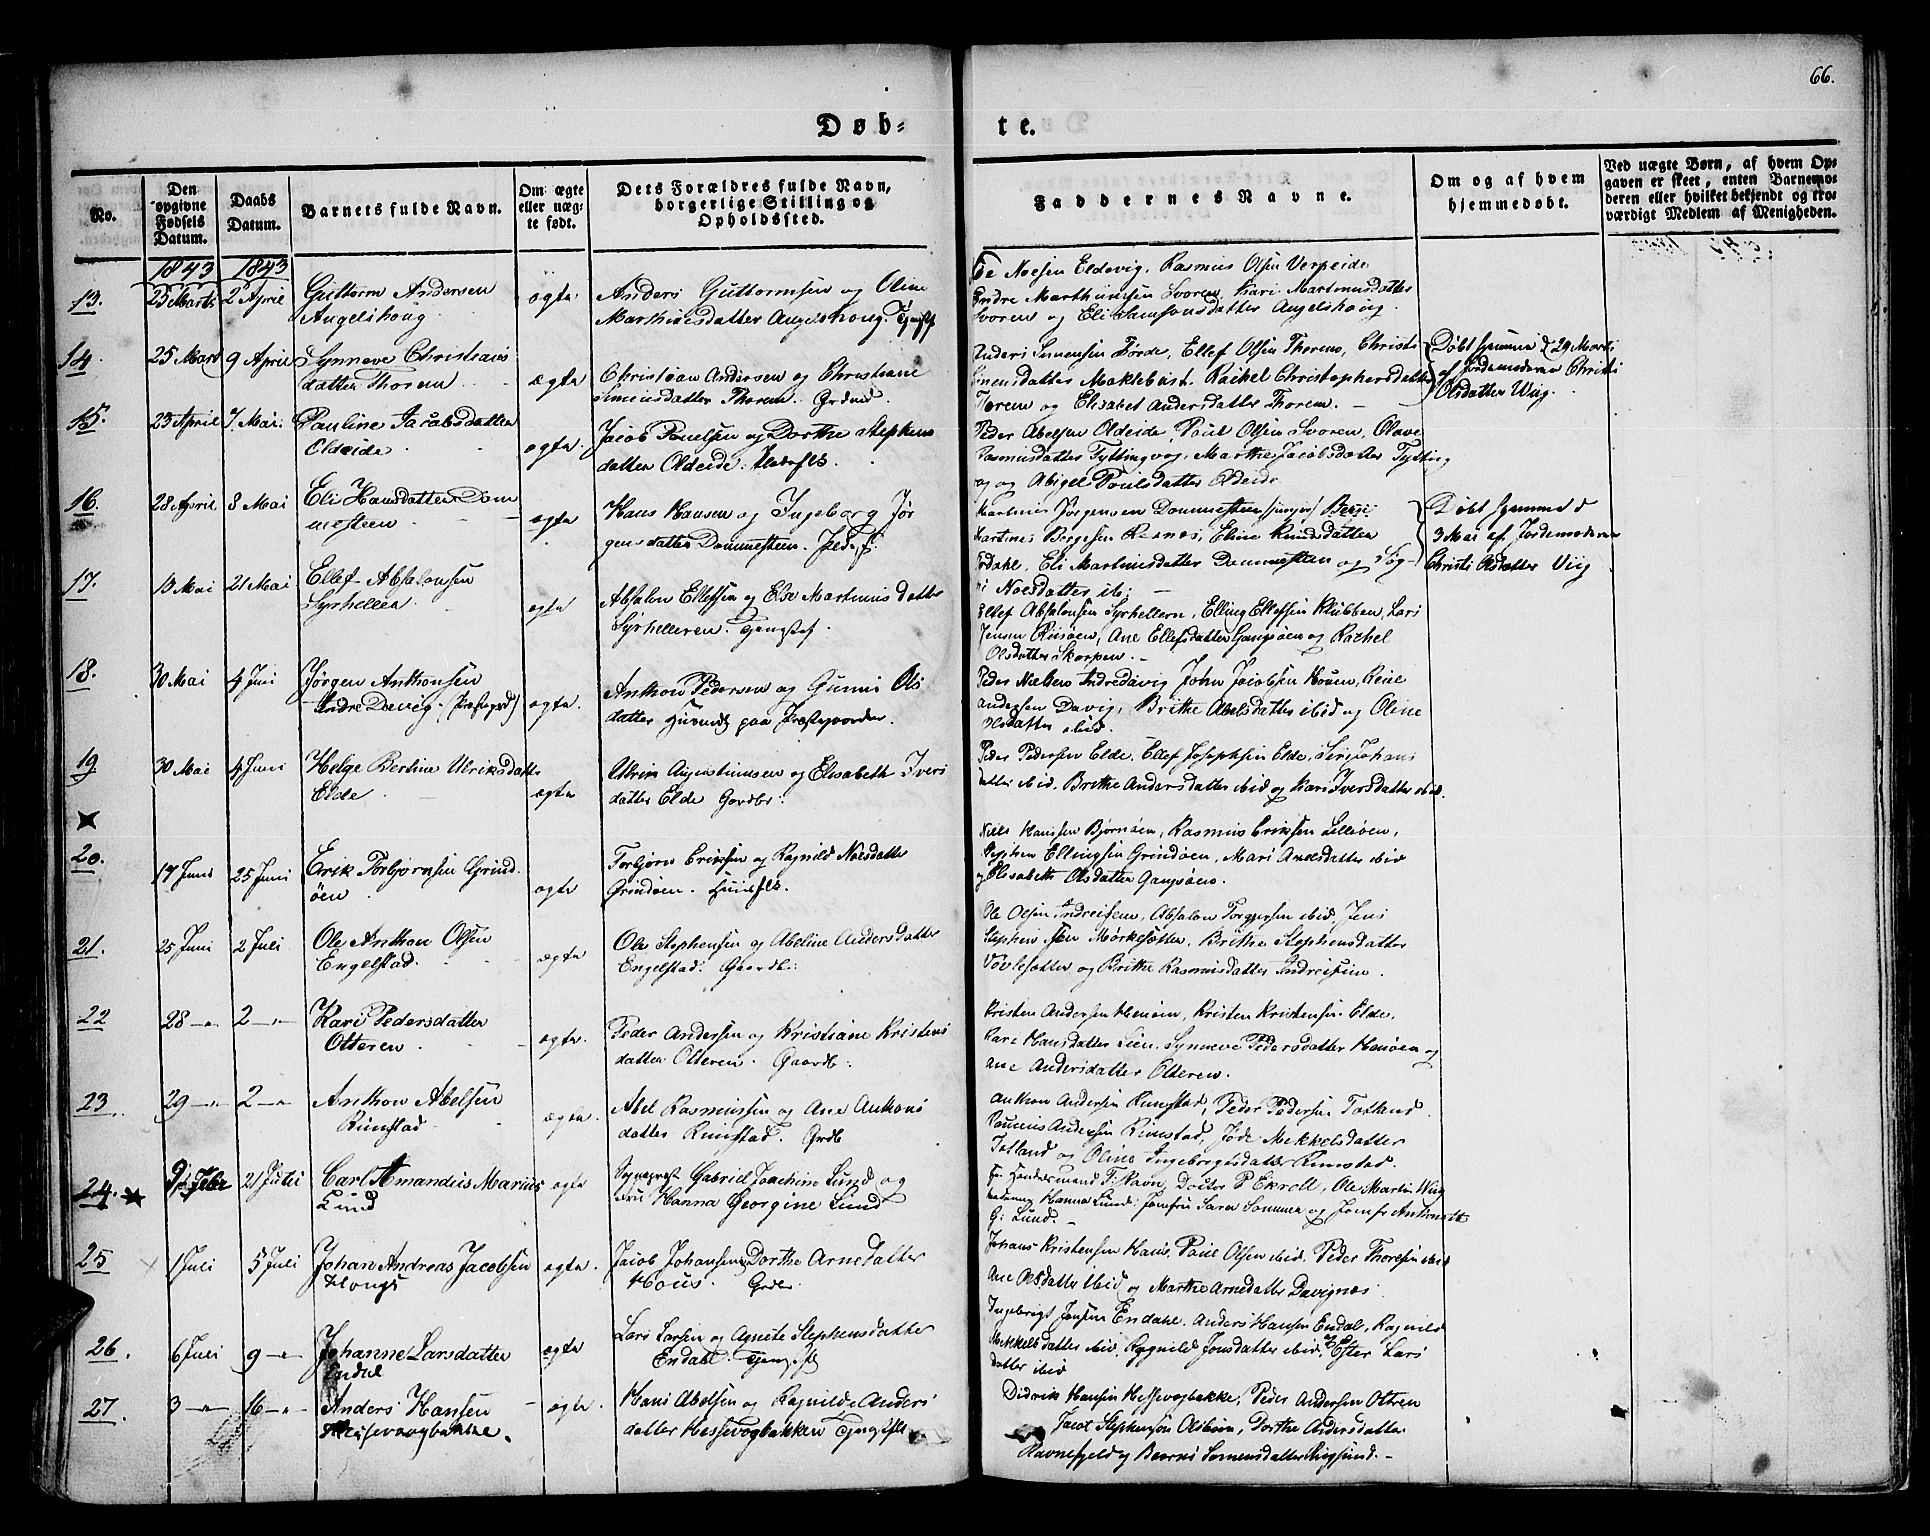 66.
Døb-
te.
No.
Den opgivne Fødsels Datum.
Daabs Datum.
Barnets fulde Navn.
Om ægte eller uægte født.
Dets Forældres fulde Navn, borgerlige Stilling og Opholdssted.
Faddernes Navne.
Om og af hvem hjemmedøbt.
Ved uægte Børn, af hvem Opgaven er skeet, enten Barnemoderen eller hvilket bekjendt og troværdigt Medlem af Menigheden.
1843 1843
13. 23 Marts 2 April Guttorm Andersen ægte Anders Guttormsen og Oline
Angelshoug Marthinsdatter Angelshoug.
Noesen Eldevig, Rasmus Olsen Verpeide
Endre Marthinusen Svoren, Kari Martinusdatter
Svoren og Eli Samsonsdatter Angelshoug.
14. 25 Mart 9 April Synneve Christians
datter Thorem ægte Christian Andersen og Christiane
Simensdatter Thorem.
Anders Simensen Førde, Ellef Olsen Thorem, Christi
Simensdatter Maklebust, Rachel Christophersdatter
Thorem og Elisabet Andersdatter Thorem.
Døbt hjemme d 29 Marts
af Jordemoderen Christi
Olsdatter Viig.
15. 23 April 7 Mai. Pauline Jacobsdatter
Oldeide ægte Jacob Poulsen og Dorthe Stephens
datter Oldeide.
Peder Abelsen Oldeide, Poul Olsen Svoren, Olave
Rasmusdatter Tyttingvog, Marthe Jacobsdatter Tytting
og og Abigel Poulsdatter Oldeide
16. 28 April 8 Mai Eli Hansdatter Dom
mesteen ægte Hans Hansen og Ingeborg Jør
gensdatter Dommesteen.
Martinus Jørgensen Dommesteen
Martines Børgesen Resnes, Eline Knudsdatter
Ordahl, Eli Martinusdatter Dommesteen og
Noesdatter ib:
Døbt hjemme d
3 Mai af Jordemoderen
Christi Olsdatter Viig
17. 13 Mai 21 Mai Ellef Absalonsen
Syrhellen ægte Absalon Ellefsen og Else Martinusdatter
Syrhelleren.
Ellef Absalonsen Syrhellern, Elling Ellefsen Klubben, Lars
Jensen Risøen, Ane Ellefsdatter Gangsøen og Rachel
Olsdatter Skorpen.
18. 30 Mai 4 Juni Jørgen Anthonsen
Indre Davig (Præstegrd) ægte. Anthon Pedersen og Gunni Ols
datter Huusmd paa Præstegaarden.
Peder Nielsen Indredavig, John Jacobsen Houen, Reine
Andersen Davig, Brithe Abelsdatter ibid og Oline
Olsdatter ibid.
19 30 Mai 4 Juni Helge Bertine Ulriksdatter
Elde. ægte Ulrik Augustinusen og Elisabeth Ivers
datter Elde Gardbr:
Peder Pedersen Elde, Ellef Josephsen Elde, Siri Johans
datter ibid, Brithe Andersdatter ibid og Kari Iversdatter ibid.
20. 17 Juni 25 Juni Erik Torbjørnsen Grind
øen ægte Torbjørn Eriksen og Ragnild Noesdatter
Grindøen.
Niels Hanssen Bjørnøen, Rasmus Eriksen Lilleøen,
Stephen Ellingsen Grindøen, Mari Axelsdatter ibid
og Elisabeth Olsdatter Gangsøen.
21. 25 Juni 2 Juli Ole Anthon Olsen
Engelstad. ægte Ole Stephensen og Abeline Andersdatter
Engelstad. Gaardb:
Ole Olsen Indreiseim, Absalon Torgersen ibid, Jens
Stephensen Mørkesætter, Brithe Stephensdatter
Vøvlesætter og Brithe Rasmusdatter Indreiseim.
22 28 2 Kari Pedersdatter
Otteren ægte. Peder Andersen og Kristiane Kristens
datter Otteren. Gaardb:
Kristen Andersen Henøen, Kristen Kristensen Elde,
Kari Hansdatter Lien, Synneve Pedersdatter Henøen og
Ane Andersdatter Otteren.
23 29 2 Anthon Abelsen
Rimstad ægte. Abel Rasmussen og Ane Anthons
datter Rimstad. Grdb
Anthon Andersen Rimstad, Peder Pedersen Totland
Rasmus Andersen Rimstad, Jøde Mekkelsdatter
Totland og Oline Ingebrigtsdatter Rimstad.
24. 9 Febr 21 Juli Carl Amandus Marius
Lund ægte Sogneprest Gabriel Joachim Lund og
Fru Hanna Georgine Lund
Hr Handelsmand F: Ravn, Doctor P Ekroll, Ole Martin Wiig
Madame Hanna Lund, Jomfru Sara Sommer og Jomfr Anthonette
G: Lund.
25 1 Juli 5 Juli Johan Andreas Jacobsen
Hougs ægte. Jacob Johansen Dorthe Arnedatter
Hous. Grdbr
Johans Kristensen Hous, Poul Olsen ibid, Peder Thoresen ibid
Ane Olsdatter ibid og Marthe Arnedatter Davignes
26. 6 Juli 9 Johanne Larsdatter
Endal ægte Lars Larsen og Agnete Stephensdatter
Endahl.
Ingebrigt Jensen Endahl, Anders Hansen Endal, Ragnild
Mekkelsdatter ibid, Ragnild Jonsdatter ibid, Ester Lars
datter ibid
27. 3 16 Anders Hansen
Hessevogbakke. ægte. Hans Abelsen og Ragnilde Anders
datter Hessevogbakken
Didrik Hansen Hessevogbakke, Peder Andersen Otteren
Jacob Stephensen Alsheim, Dorthe Andersdatter
Ravnefjeld og Beerni Simensdatter